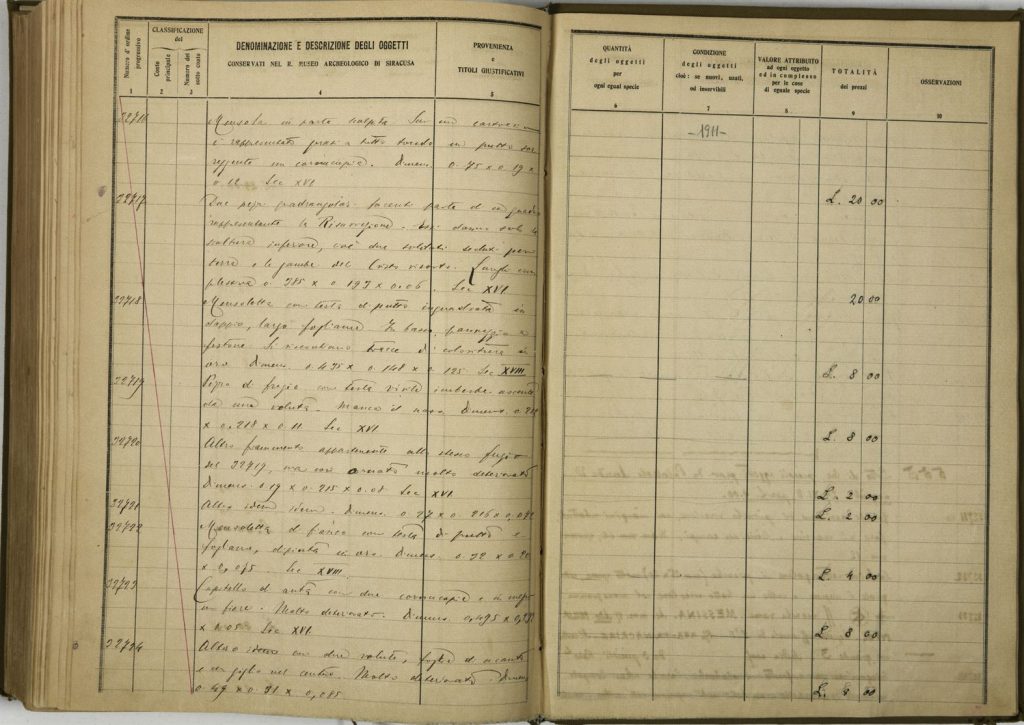 Numero d'ordine progressivo
CLASSIFICAZIONE
del
Conto principale
Numero del sotto conto
DENOMINAZIONE E DESCRIZIONE DEGLI OGGETTI
CONSERVATI NEL R. MUSEO ARCHEOLOGICO DI SIRACUSA
PROVENIENZA
e
TITOLI GIUSTIFICATIVI
1 2 3 4 5
32716 Mensola in parte scolpita. Su un cartoccio
è rappresentato quasi a tutto tondo un putto sor
reggente un cornucopia. Dimens. 0.45 x 0.19 x
0.12 Sec XVI
32717 Due pezzi quadrangolari facenti parte di un quadro
rappresentante la Risurrezione.
inferiore, cioè due soldati seduti per
terra e le gambe del Cristo risorto.
0.385 x 0.197 x 0.06. Sec XVI
32718 Mensoletta con testa di putto inquadrata in
doppio, largo fogliame. In basso, panneggio a
festone. Si riscontrano tracce di coloritura in
oro. Dimens. 0.435 x 0.148 x 0.125 Sec XVIII
32719 Pezzo di fregio con testa virile imberbe
da una voluta. Manca il naso. Dimens.
x 0.218 x 0.11 Sec XVI
32720 Altro frammento appartenente allo stesso fregio
del 32719, ma molto deteriorato
Dimens. 0.19 x 0.215 x 0.08 Sec XVI
32721 Altro idem idem. Dimens. 0.27 x 0.216 x
32722 Mensoletta di fianco con testa di putto e
fogliame, dipinta in oro. Dimens. 0.32 x
x 0,075. Sec XVIII
32723 Capitello di anta con due cornucopie e in mezzo
un fiore. Molto deteriorato. Dimens. 0,495 x
x 0.05 Sec XVI
32724 Altro idem con due volute, foglie d'acanto
e un giglio nel centro. Molto deteriorato. Dimens
0.49 x 0.31 x 0,085
QUANTITÀ
degli oggetti
per
ogni egual specie
CONDIZIONE
degli oggetti
cioè: se nuovi, usati,
od inservibili
VALORE ATTRIBUITO
ad ogni oggetto
ed in complesso
per le cose
di eguale specie
TOTALITÀ
dei prezzi
OSSERVAZIONI
6 7 8 9 10
-1911-
L. 20 00
20 00
L. 8 00
L. 8 00
L. 2 00
L. 2 00
L. 4 00
L. 8 00
L. 8 00